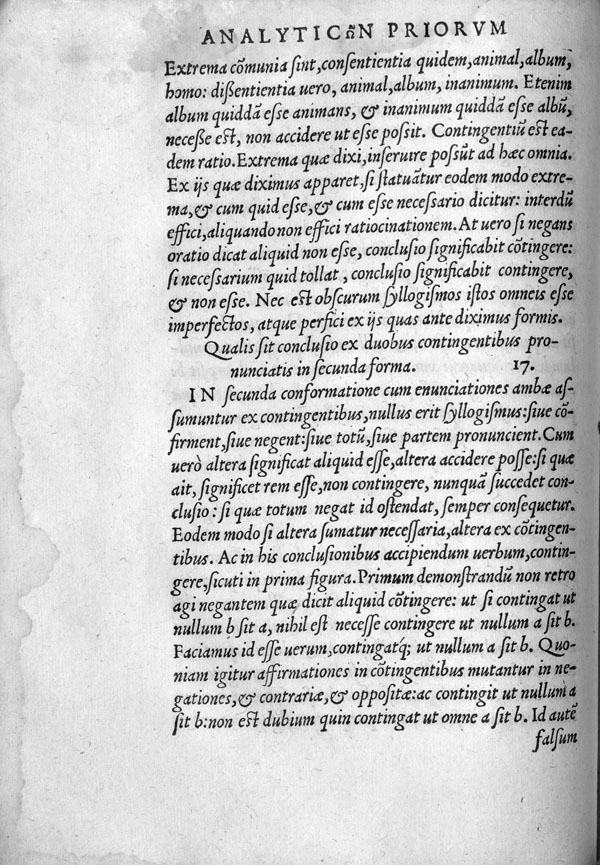 ANALYTICωN PRIORVM
Extrema cõmunia sint, consentientia quidem, animal, album,
homo: dißentientia uero, animal, album, inanimum. Etenim
album quiddã esse animans, & inanimum quiddã esse albũ,
neceße est, non accidere ut esse poßit. Contingentiũ est ea-
dem ratio. Extrema quæ dixi, inseruire possũt ad hæc omnia.
Ex ijs quæ diximus apparet, si statuãtur eodem modo extre-
ma, & cum quid esse, & cum esse necessario dicitur: interdũ
effici, aliquando non effici ratiocinationem. At uero si negans
oratio dicat aliquid non esse, conclusio significabit cõtingere:
si necessarium quid tollat, conclusio significabit contingere,
& non esse. Nec est obscurum syllogismos istos omneis esse
imperfectos, atque perfici ex ijs quas ante diximus formis.
Qualis sit conclusio ex duobus contingentibus pro-
nunciatis in secunda forma. 17.
IN secunda conformatione cum enunciationes ambæ as-
sumuntur ex contingentibus, nullus erit syllogismus: siue cõ-
firment, siue negent: siue totũ, siue partem pronuncient. Cum
uerò altera significat aliquid esse, altera accidere posse: si quæ
ait, significet rem esse, non contingere, nunquã succedet con-
clusio: si quæ totum negat id ostendat, semper consequetur.
Eodem modo si altera sumatur necessaria, altera ex cõtingen-
tibus. Ac in his conclusionibus accipiendum uerbum, contin-
gere, sicuti in prima figura. Primum demonstrandũ non retro
agi negantem quæ dicit aliquid cõtingere: ut si contingat ut
nullum b sit a, nihil est necesse contingere ut nullum a sit b.
Faciamus id esse uerum, contingatq́; ut nullum a sit b. Quo-
niam igitur affirmationes in cõtingentibus mutantur in ne-
gationes, & contrariæ, & oppositæ: ac contingit ut nullum a
sit b: non est dubium quin contingat ut omne a sit b. Id autẽ
falsum